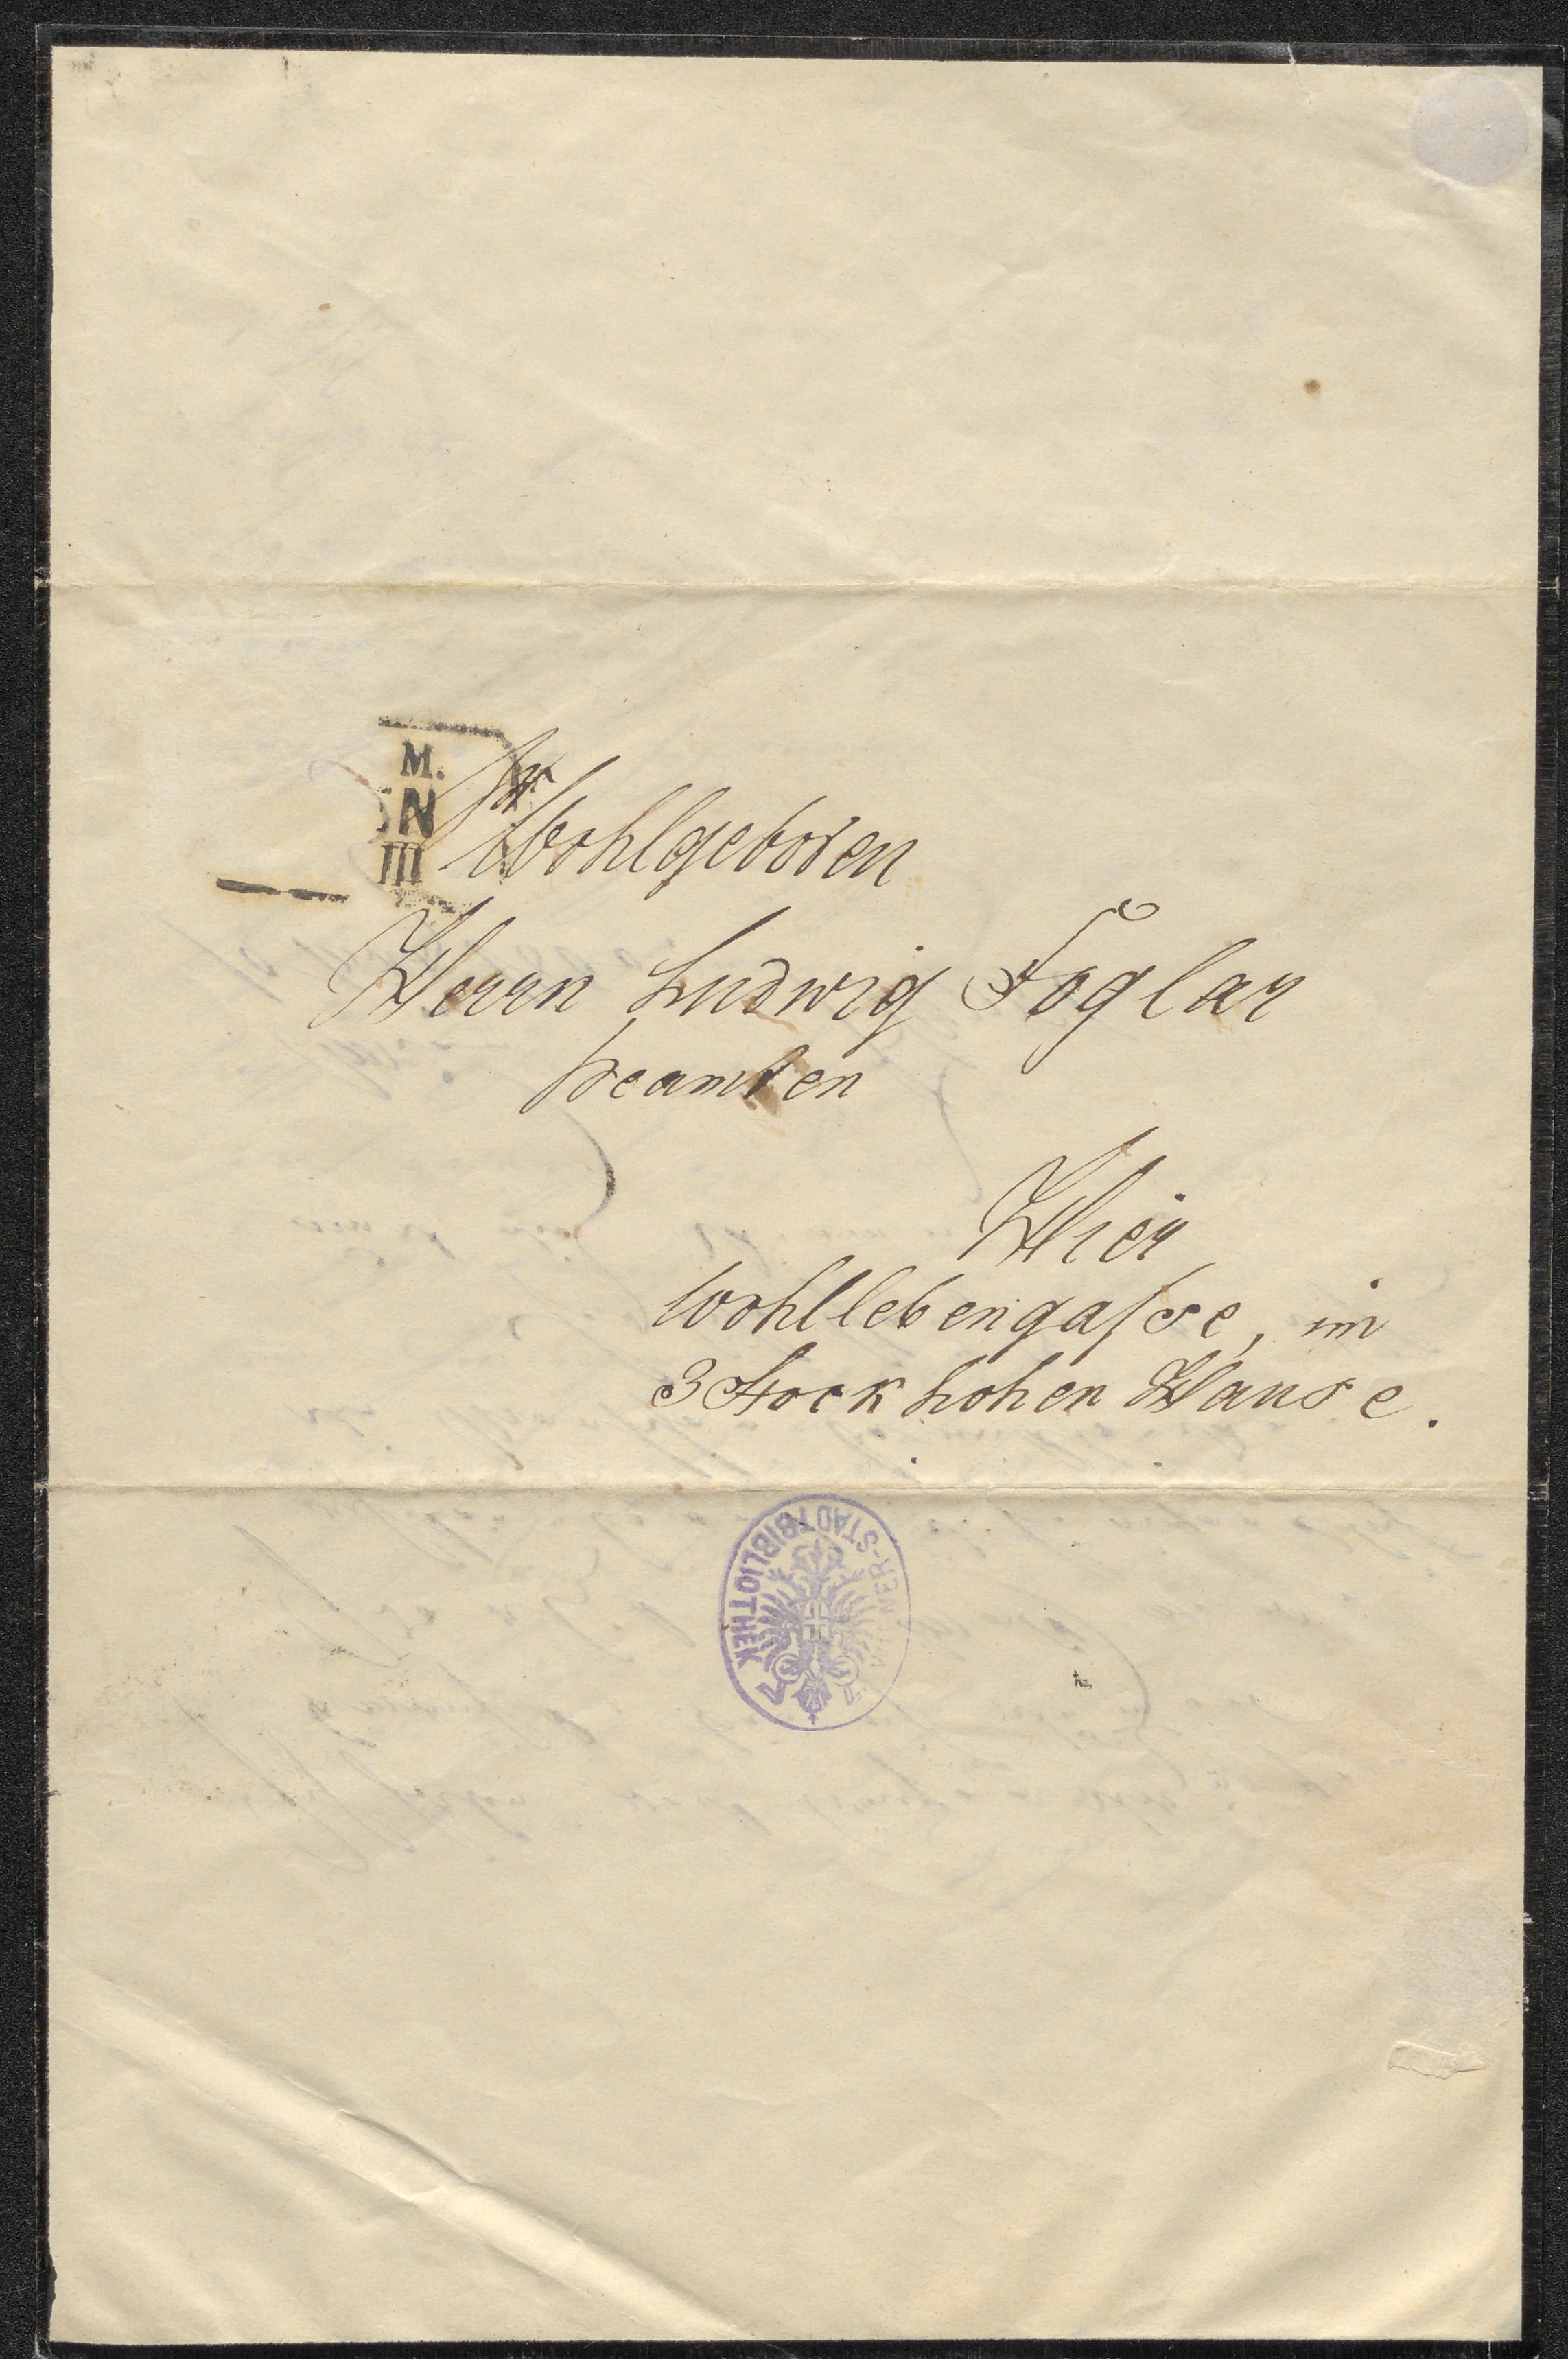 M.
N
III
Sr
Wohlgeboren
Herrn Ludwig Foglar
beamten
Hier
Wohllebengaſse, im
3 Stock hohen Hause.
WIENER-STADTBIBLIOTHEK